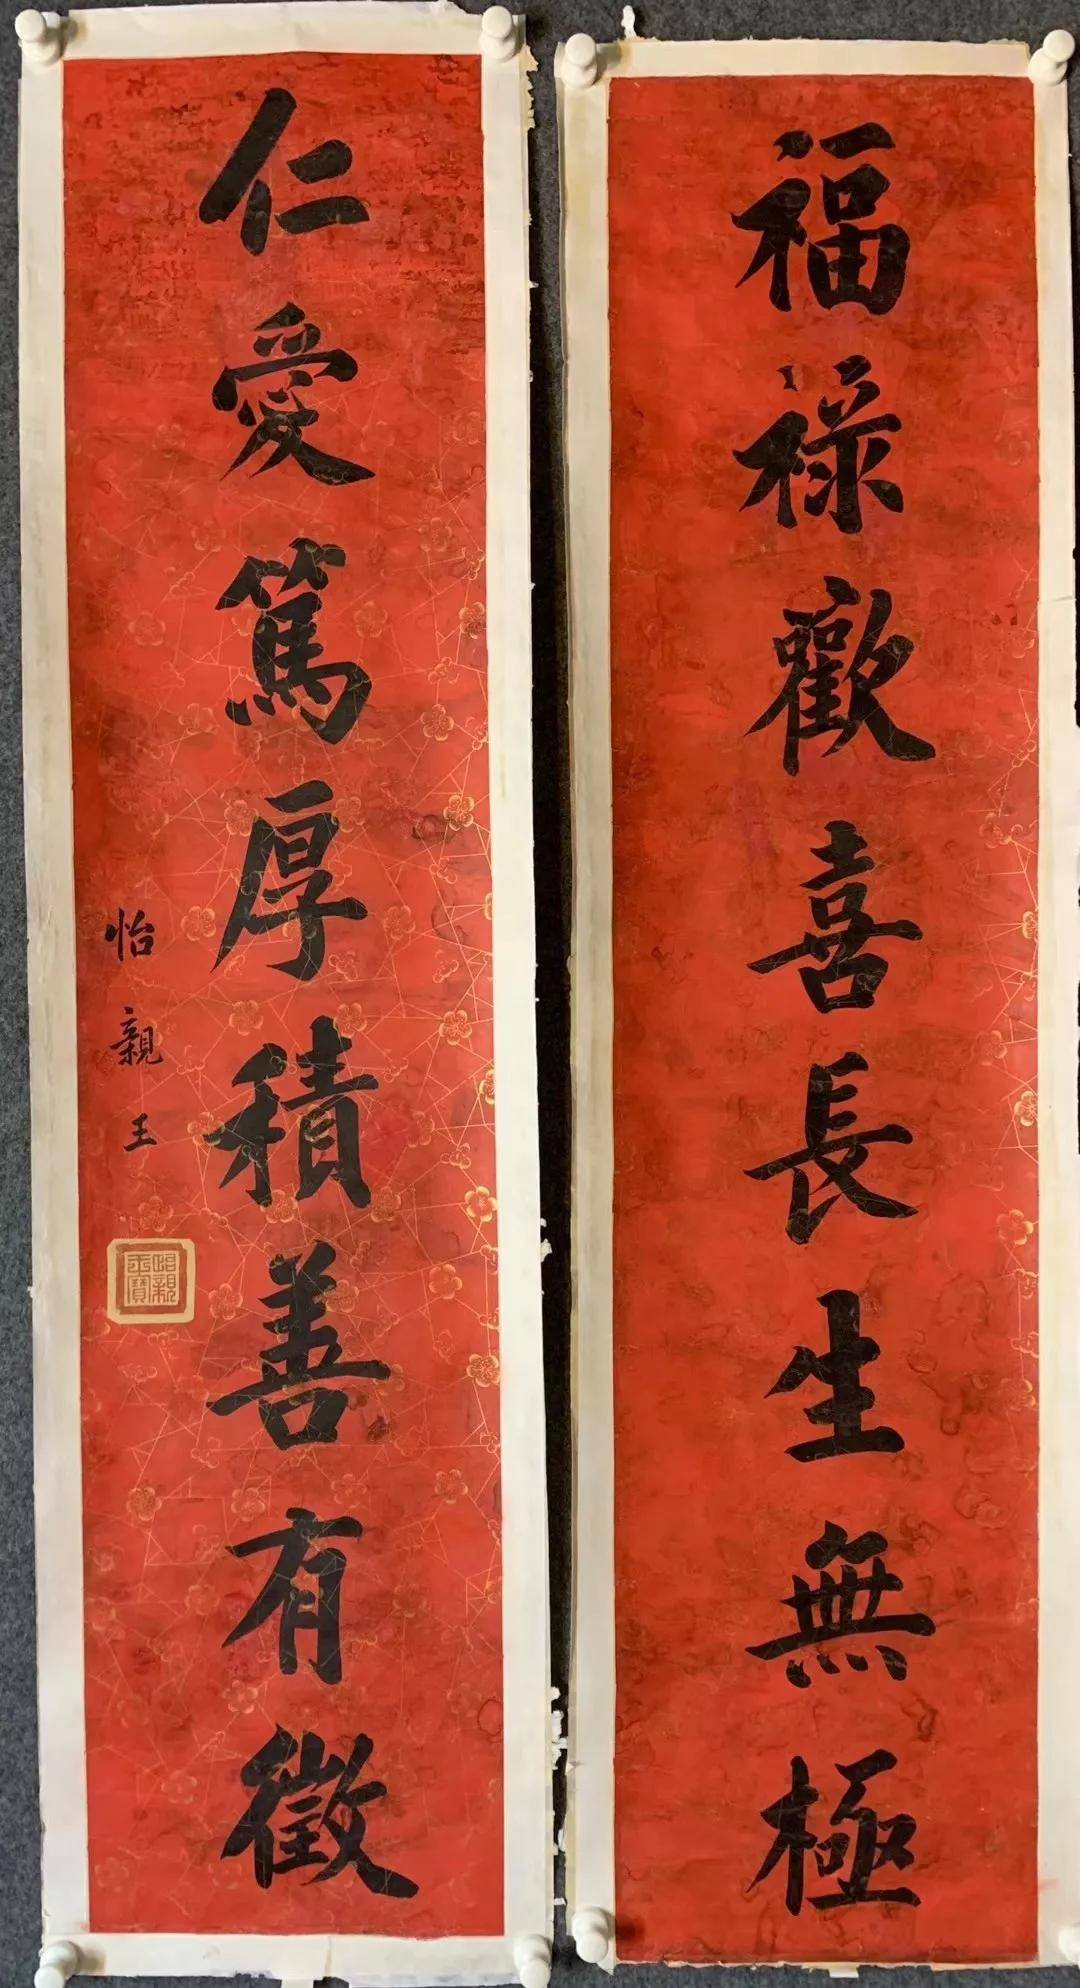 福祿歡喜長生無極
仁愛篤厚積善有徵
怡親王
怡親王寶